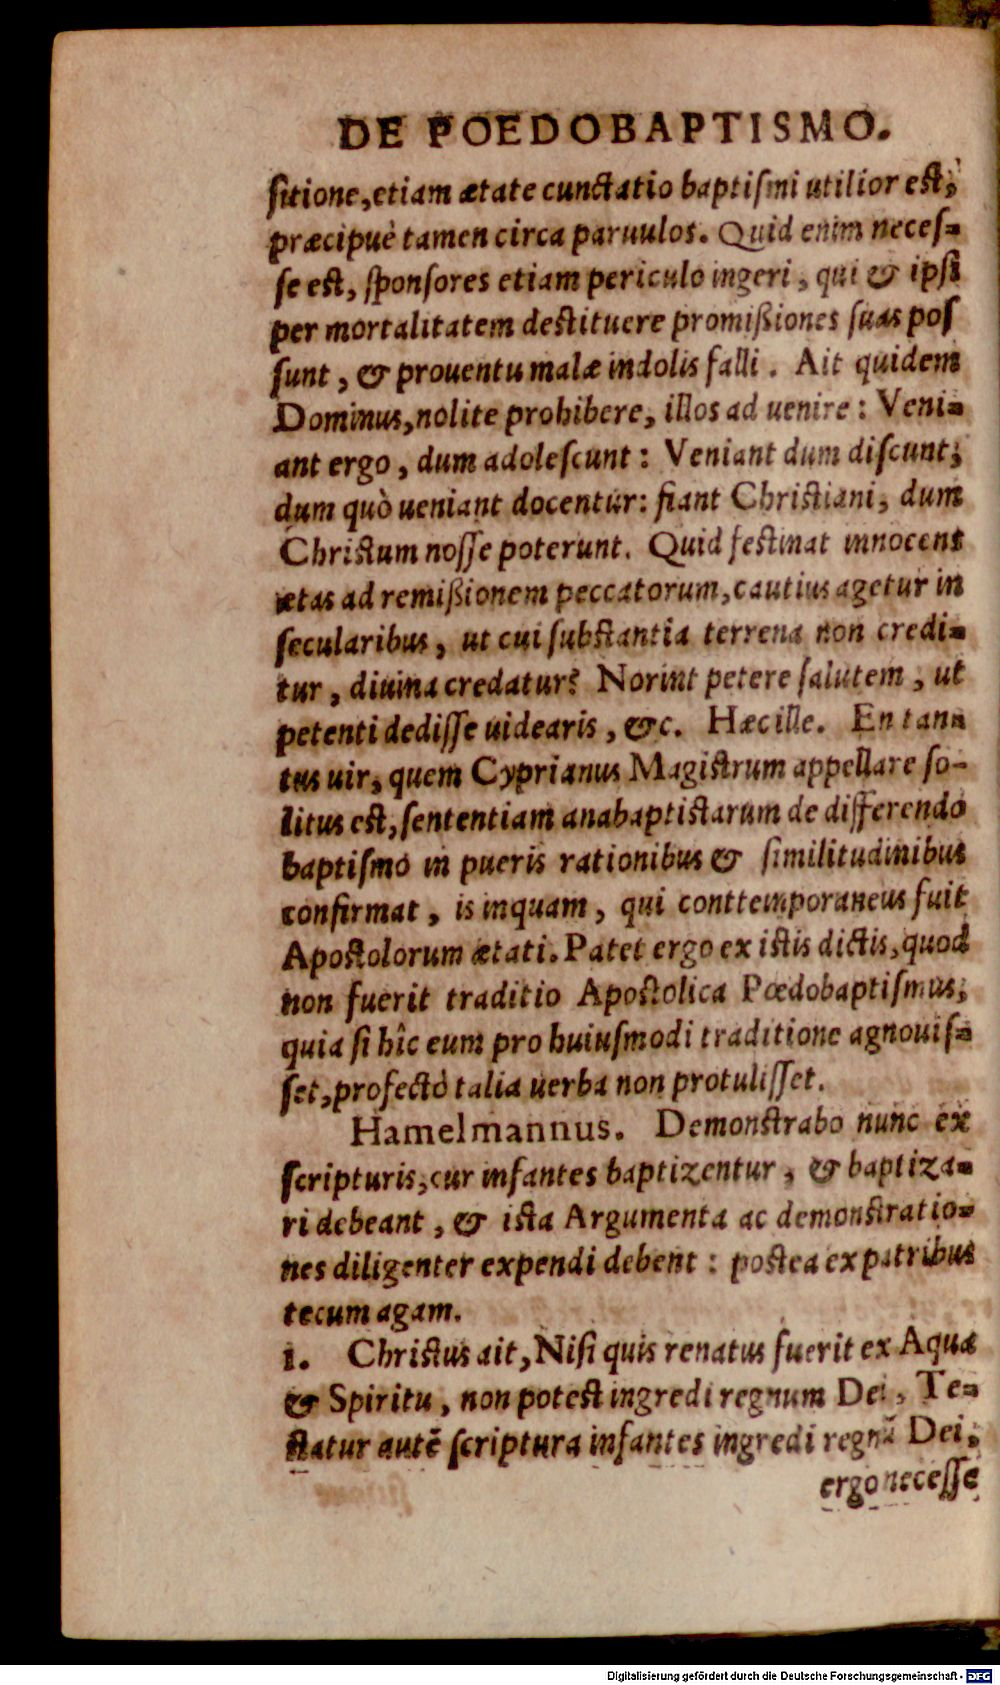 DE POEDOBAPTISMO.
ſitione, etiam ætate cunctatio baptiſmi utilior eſt,
præcipuè tamen circa paruulos. Quid enim neceſ-
ſe eſt, ſponſores etiam periculo ingeri, qui & ipſi
per mortalitatem deſtituere promißiones ſuas poſ
ſunt, & prouentu malæ indolis falli. Ait quidem
Dominus, nolite prohibere, illos ad uenire: Veni-
ant ergo, dum adoleſcunt: Veniant dum diſcunt;
dum quò ueniant docentur: fiant Chriſtiani, dum
Chriſtum noſſe poterunt. Quid feſtinat innocens
ætas ad remißionem peccatorum, cautius agetur in
ſecularibus, ut cui ſubſtantia terrena non credi-
tur, diuina credatur? Norint petere ſalutem, ut
petenti dediſſe uidearis, &c. Hæc ille. En tan-
tus uir, quem Cyprianus Magiſtrum appellare ſo-
litus eſt, ſententiam anabaptiſtarum de differendo
baptiſmo in pueris rationibus & ſimilitudinibus
confirmat, is inquam, qui conttemporaneus fuit
Apoſtolorum ætati. Patet ergo ex iſtis dictis, quod
non fuerit traditio Apoſtolica Pœdobaptiſmus;
quia ſi hîc eum pro huiuſmodi traditione agnouiſ-
ſet, profectò talia uerba non protuliſſet.
Hamelmannus. Demonſtrabo nunc ex
ſcripturis, cur infantes baptizentur, & baptiza-
ri debeant, & iſta Argumenta ac demonſtratio-
nes diligenter expendi debent: poſtea ex patribus
tecum agam.
1. Chriſtus ait, Niſi quis renatus fuerit ex Aqua
& Spiritu, non poteſt ingredi regnum Dei, Te-
ſtatur autē ſcriptura infantes ingredi regnū Dei,
ergo neceſſe
Digitalisierung gefördert durch die Deutsche Forschungsgemeinschaft - DFG